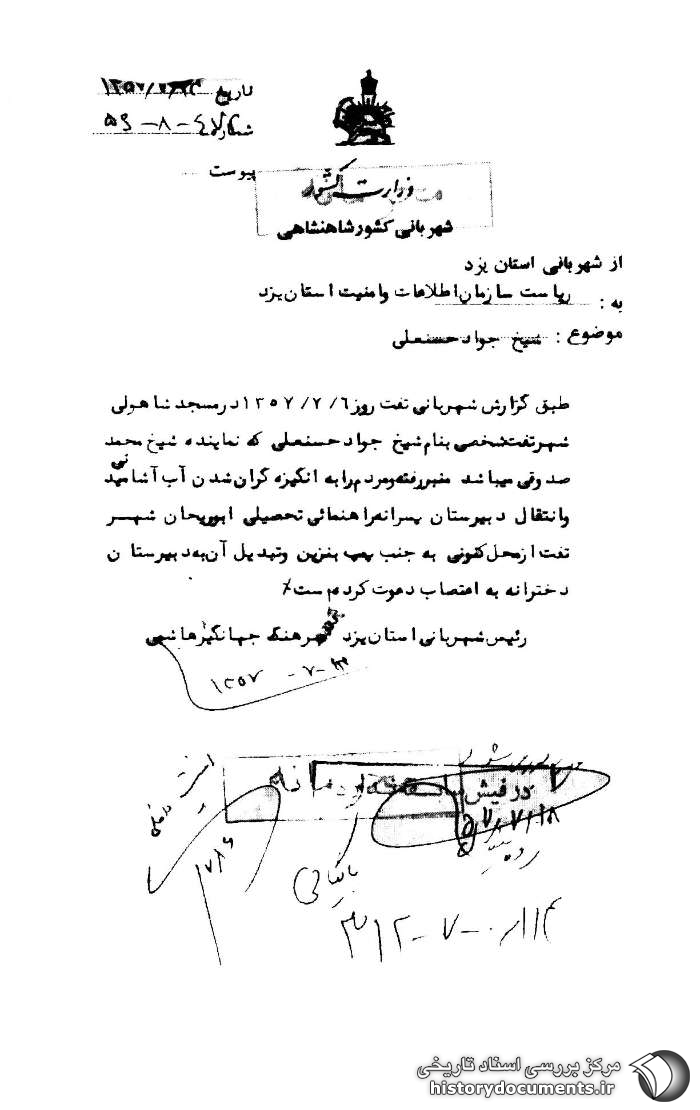 تاریخ
شماره
پیوست
وزارت کشور
شهربانی کشور شاهنشاهی
از شهربانی استان یزد
به : ریاست سازمان اطلاعات وامنیت استان یزد
موضوع : شیخ جواد حسنعلی
طبق گزارش شهربانی تفت روز ۱۳۵۷/۷/۶ در مسجد شاه ولی
شهر تفت شخصی بنام شیخ جواد حسنعلی که نماینده شیخ محمد
صدوقی میباشد منبر رفته ومردم را به انگیزه گران شدن آب آشامیدنی
وانتقال دبیرستان پسرانه راهنمائی تحصیلی ابوریحان شهر
تفت از محل کنونی به جنب پمپ بنزین وتبدیل آن به دبیرستان
دخترانه به اعتصاب دعوت کرده است
رئیس شهربانی استان یزد سرهنگ جهانگیر هاشمی
در فیش
بایگانی
۳۱۲-۷-
مرکز بررسی اسناد تاریخی
historydocuments.ir